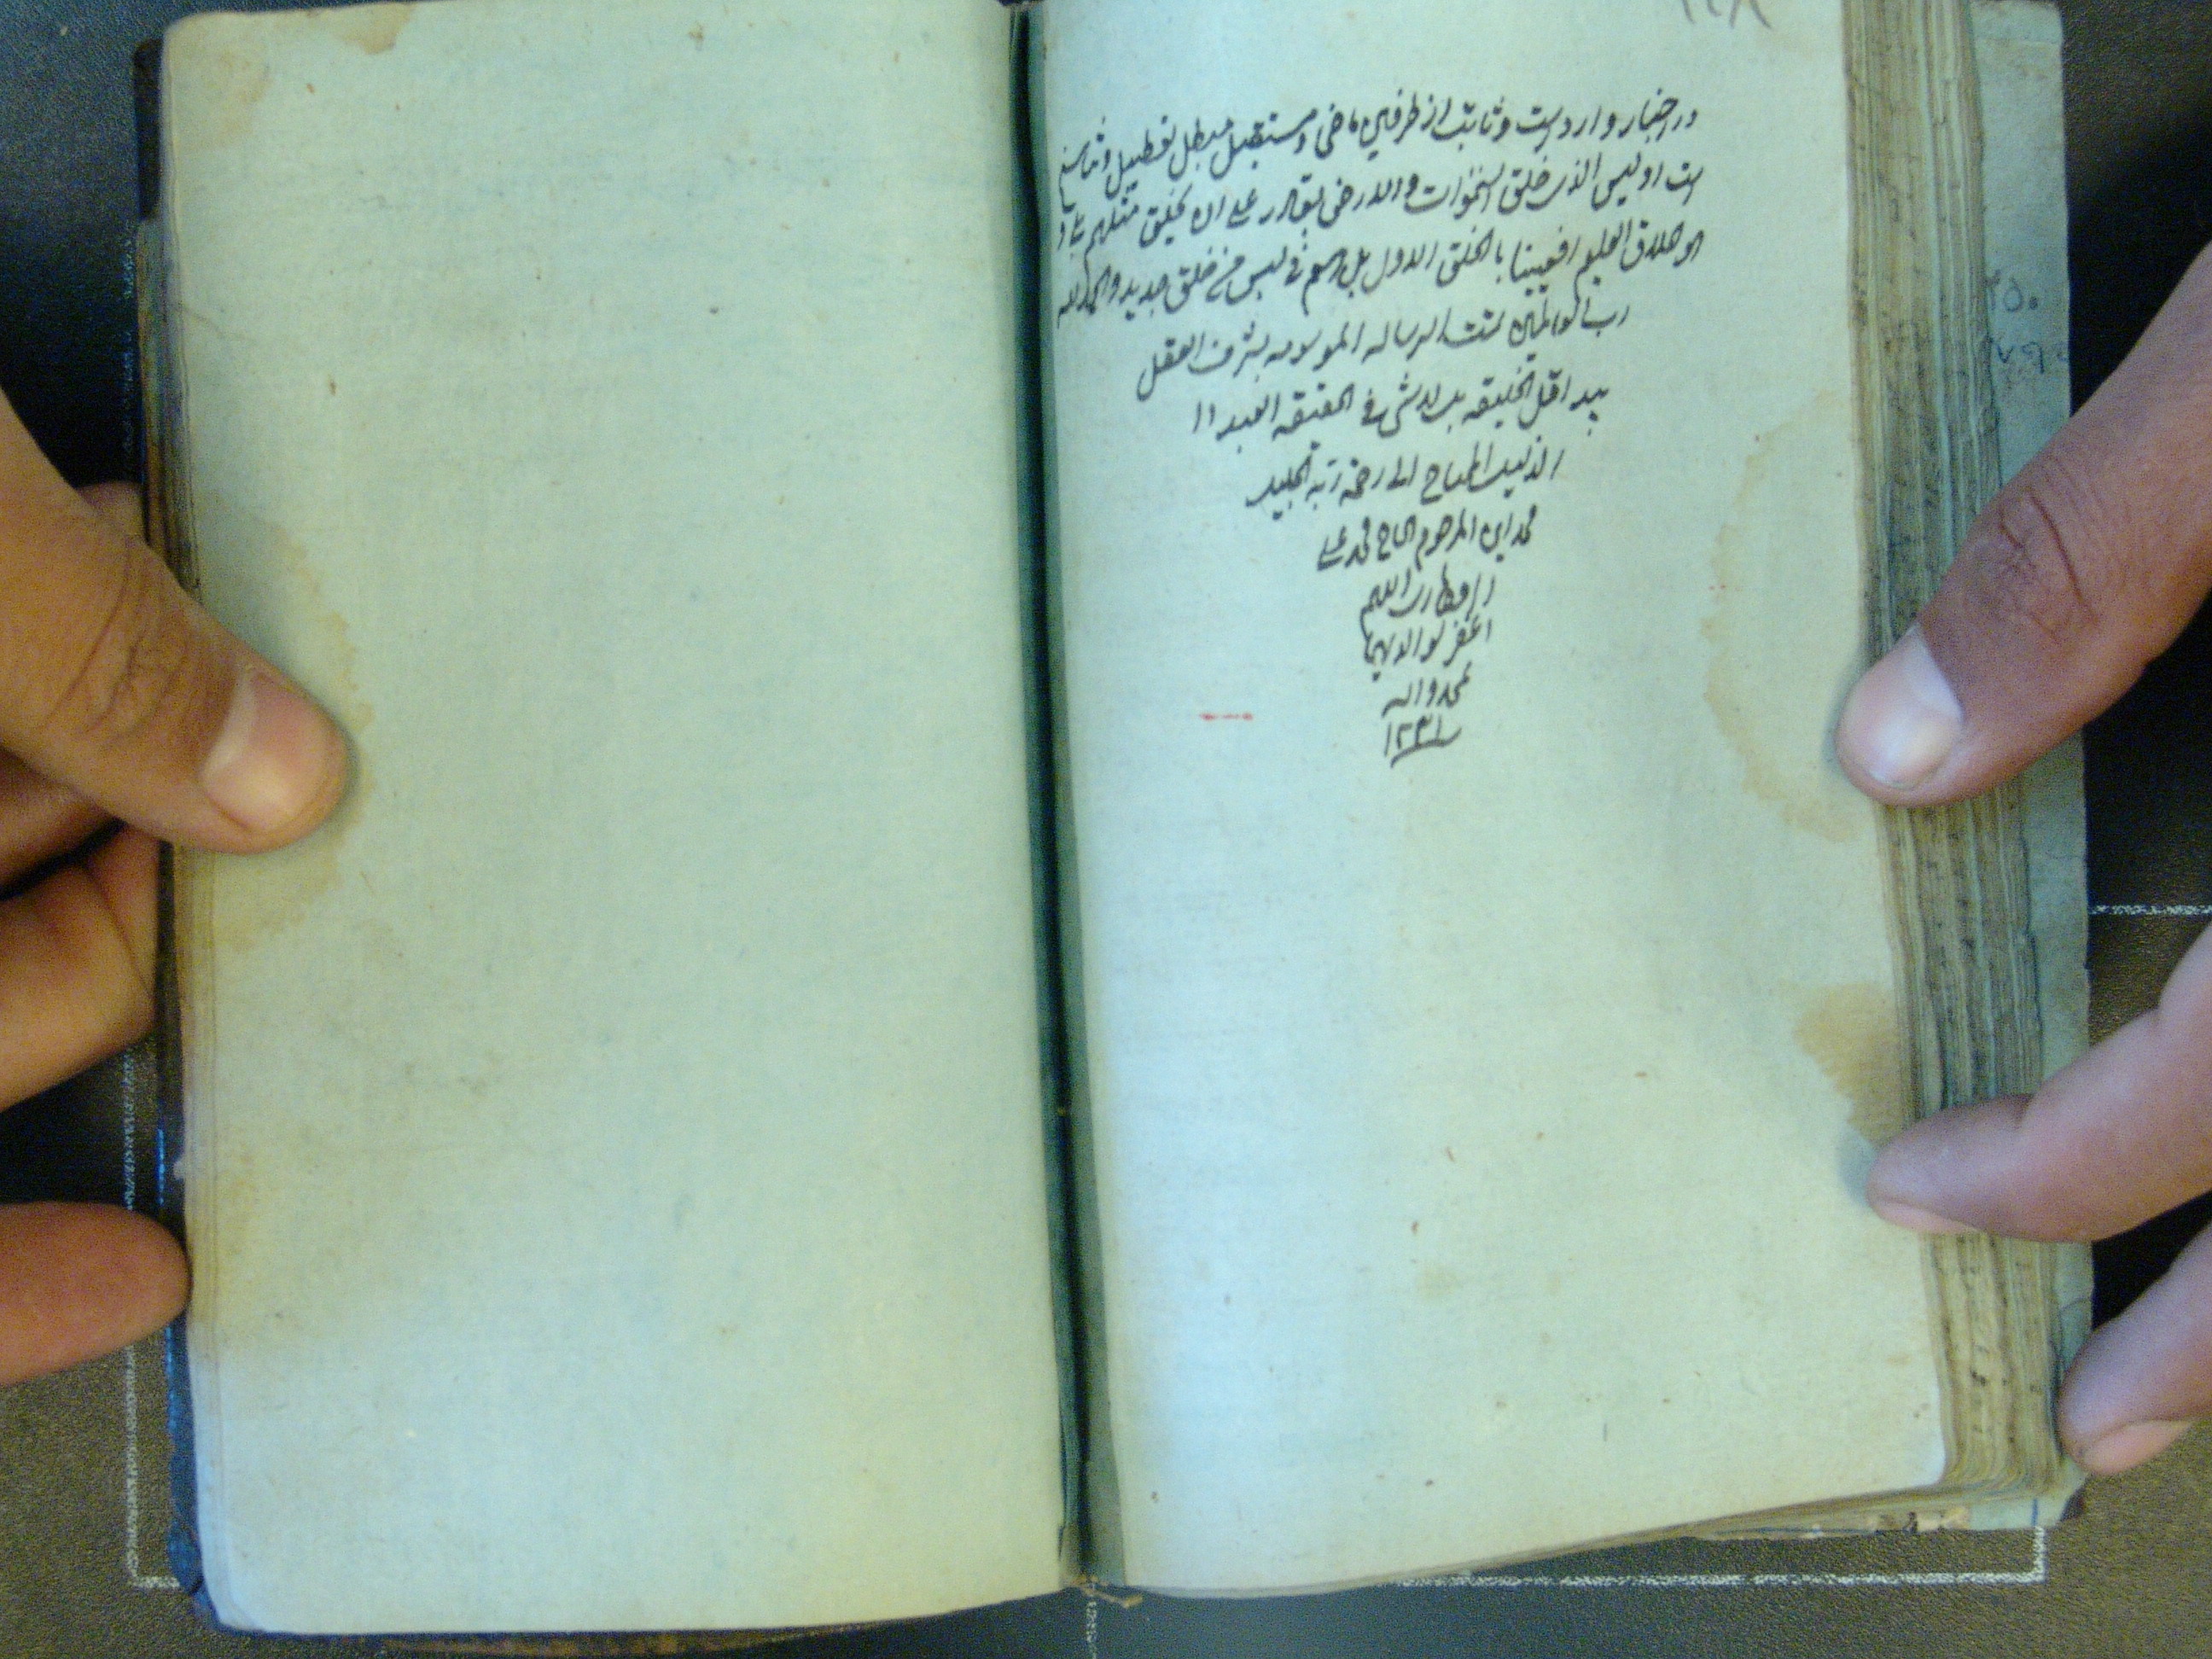 در اخبار وارد است و ثابت از طرفین ماضی و مستقبل مبطل تعطیل و تناسخ
است اولیس الذی خلق السموات والارض بقادر علی ان یخلق مثلهم بلی و
هو الخلاق العلیم افعیینا بالخلق الاول بل هم فی لبس من خلق جدید والحمد لله
رب العالمین تمت الرساله الموسومه بشرف العقل
بید اقل الخلیقه بل لا شئ فی الحقیقه العبد
الذلیل المحتاج الی رحمة ربه الجلیل
محمد ابن المرحوم الحاج محمد علی
اللهم
اغفر لوالدیهما
بمحمد واله
۱۲۳۱